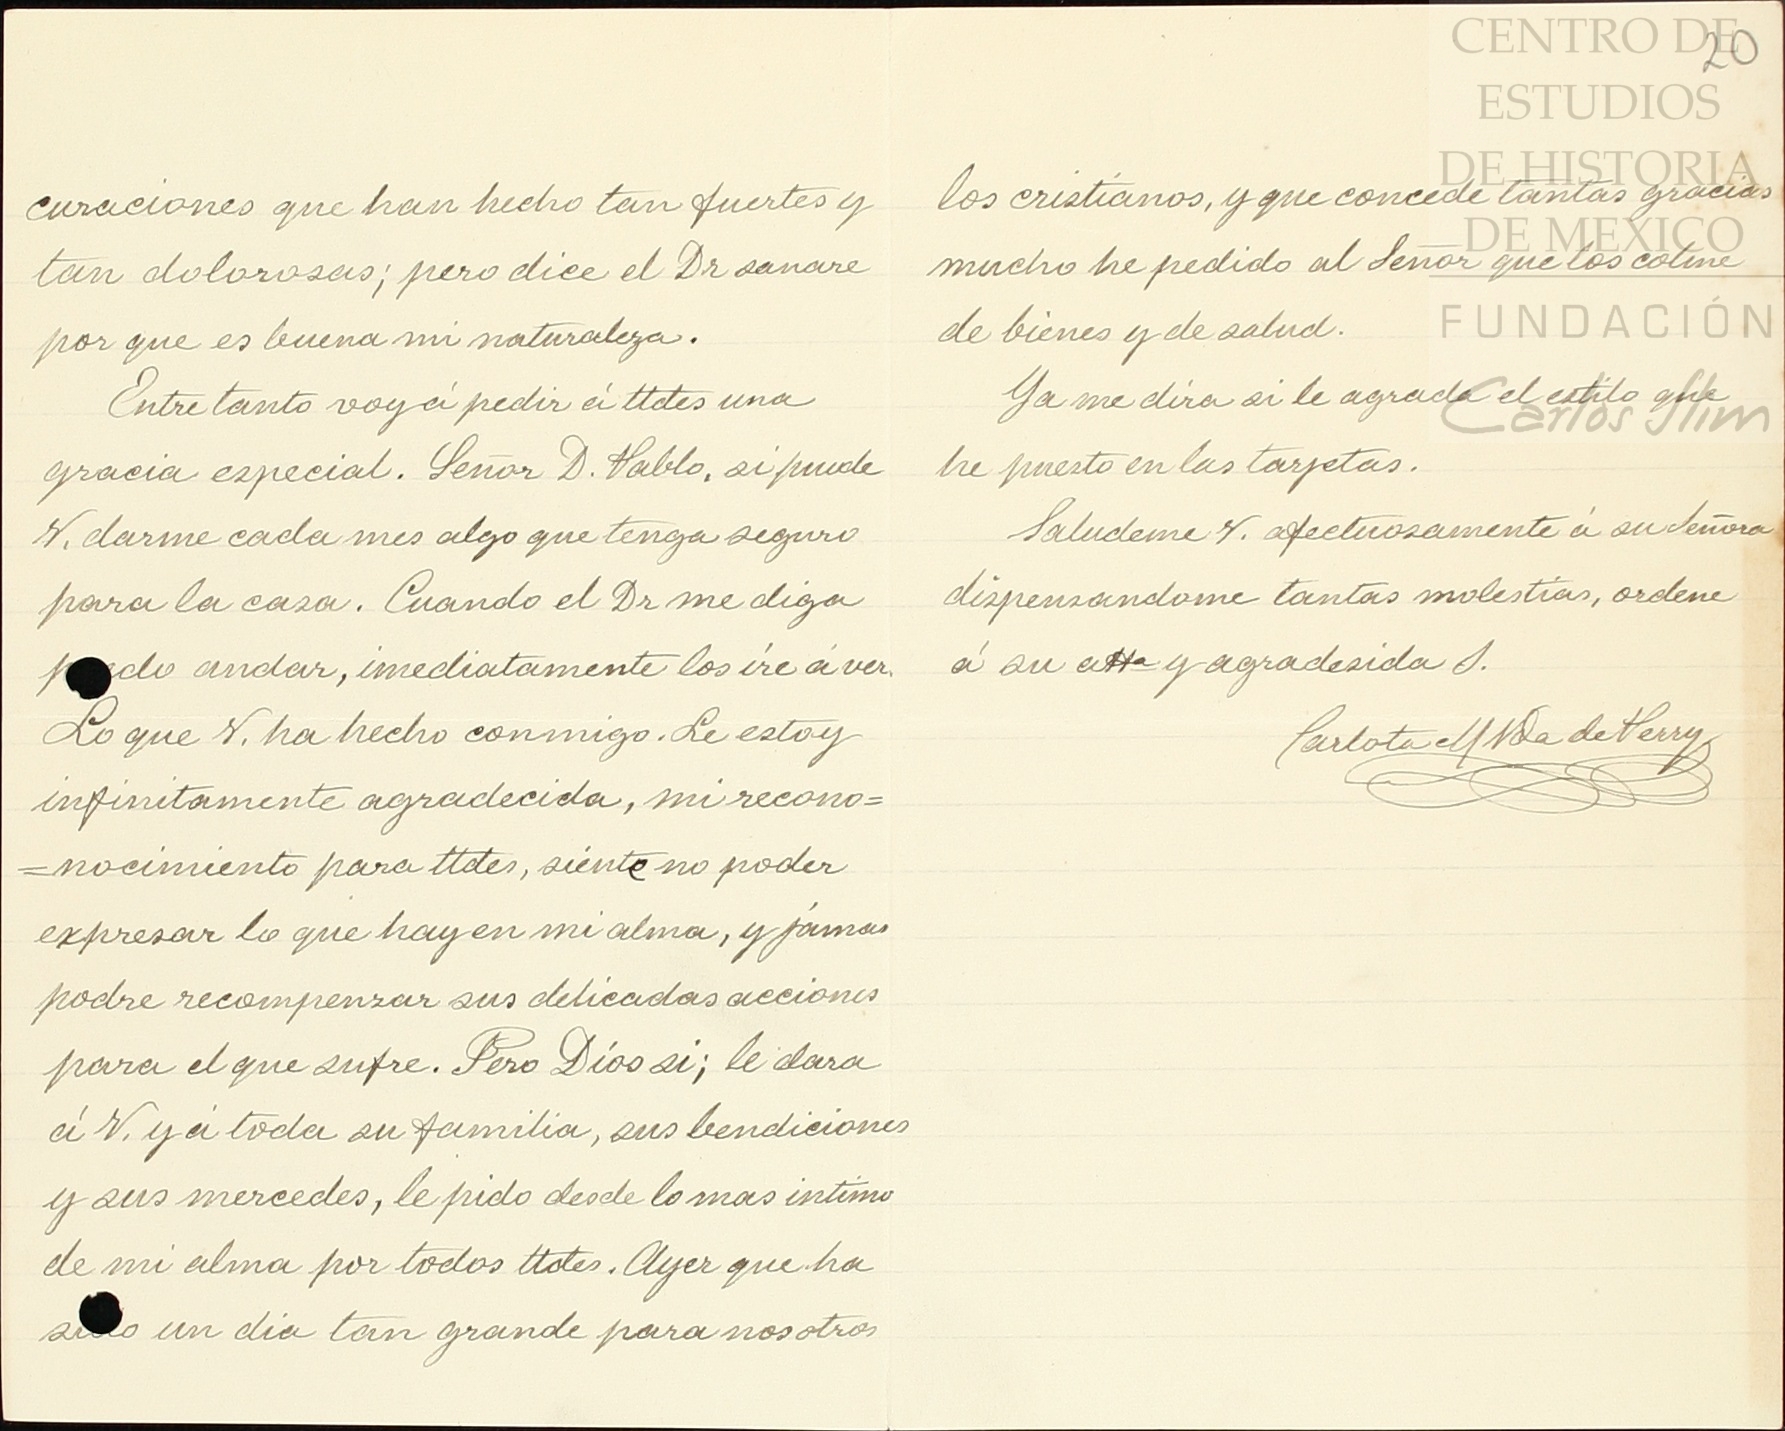 curaciones que han hecho tan fuertes y
tan dolorosas; pero dice el Dr sanare
por que es buena mi naturaleza.
Entre tanto voy á pedir á Utdes una
gracia especial. Señor D. Pablo, si puede
V. darme cada mes algo que tenga seguro
para la casa. Cuando el Dr me diga
puedo andar, imediatamente los íre á ver.
Lo que V. ha hecho conmigo. Le estoy
infinitamente agradecida, mi recono=
=nocimiento para Utdes, siente no poder
expresar lo que hay en mi alma, y jámas
podre recompenzar sus delicadas acciones
para el que sufre. Pero Díos si; le dara
á V. y á toda su familia, sus bendiciones
y sus mercedes, le pido desde lo mas intimo
de mi alma por todos Utdes. Ayer que ha
sido un dia tan grande para nosotros
20
los cristíanos, y que concede tantas gracias
mucho he pedido al Señor que los colme
de bienes y de salud.
Ya me dira si le agrada el estilo que
he puesto en las tarjetas.
Saludeme V. afectuosamente á su Señora
dispensandome tantas molestias, ordene
á su atta y agradesida S.
Carlota M Vda de Perry
CENTRO DE
ESTUDIOS
DE HISTORIA
DE MEXICO
FUNDACIÓN
Carlos Slim